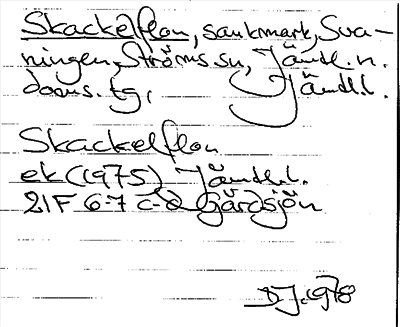 Skackelflon, sankmark, Sva-
ningen, Ströms sn, Jämtl. n.
doms. tg, Jämtl. l.
Skackelflon
ek (1975) Jämtl. l.
21F 6-7 c-d Gärdsjön
DJ. 1978